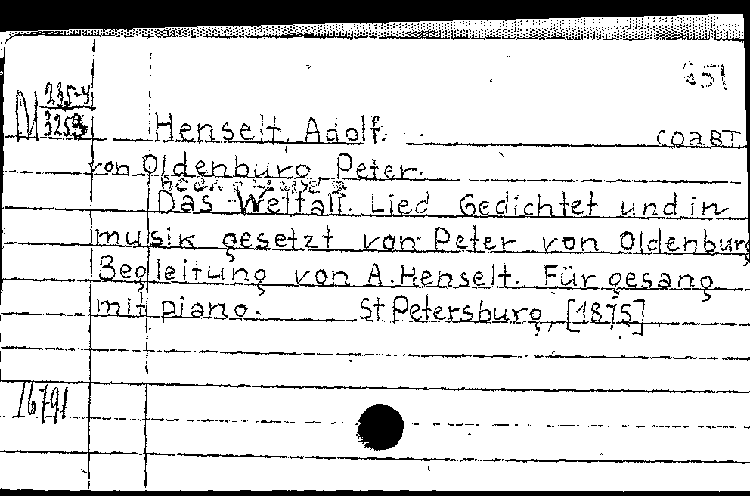 651
M 235-4
3259
Henselt, Adolf.
соавт
von Oldenburg Peter.
Das Weltall. Lied Gedichtet und in
musik gesetzt von Peter von Oldenburg
Begleitung von A. Henselt. Für gesang
mit piano. St Petersburg, [1875]
16791